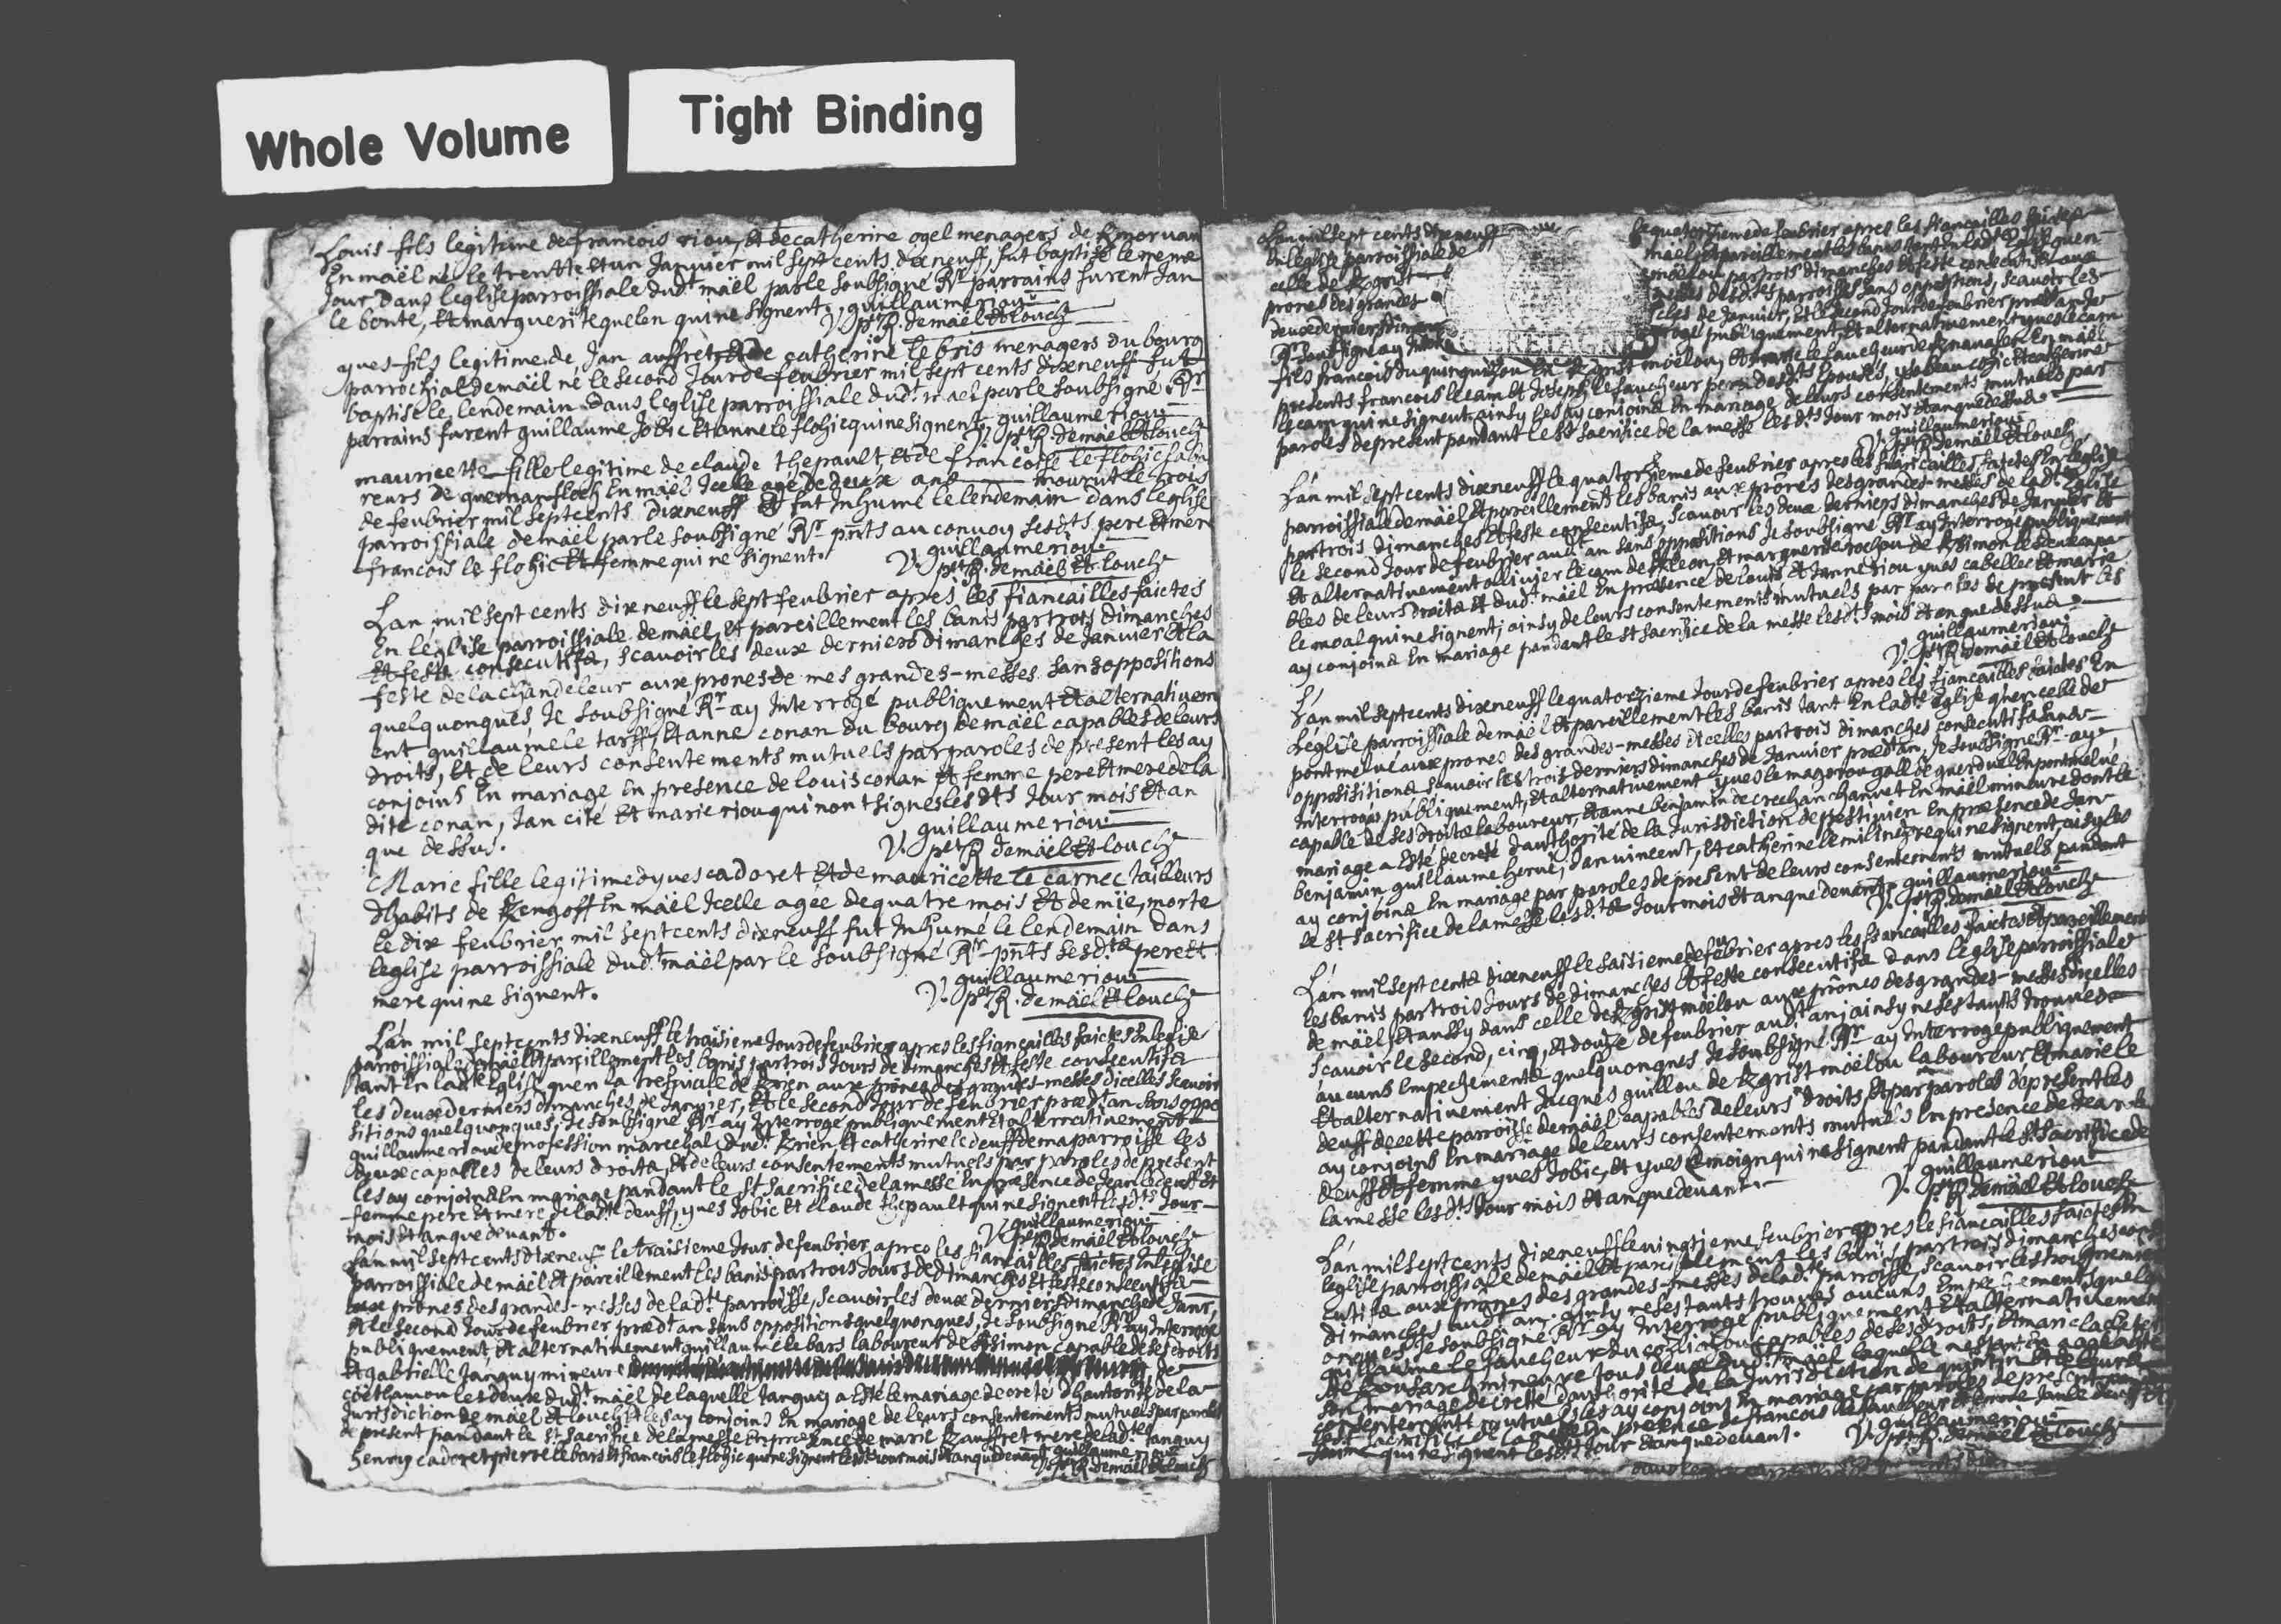 Whole Volume
Tight Binding
Louis fils legitime de francois riou, Et de catherine ogel menagers de Kmorvan
En maël né le trentte Et un Janvier mil sept cents dixneuff, fut baptisé le meme
Jour Dans leglise parroissiale dudt maël par le soubsigné Rr parrains furent Jan
le bonté, Et marguerite quelen qui ne signent. guillaume riou
V. ptre R. de maël Et louch
yves fils legitime de Jan auffret Et de catherine le bris menagers du bourg
parrochial de maël né le second Jour de feubrier mil sept cents dixneuff fut
baptisé le lendemain Dans leglise parroissiale dudt mael par le soubsigné Rr
parrains furent guillaume Jobic Et anne le flohic qui ne signent, guillaume riou
V. ptre R. de maël Et louch
mauricette fille legitime de claude thepault, Et de francoise le flohic labou
reurs de guernanfloch En maël Icelle agé de deux ans mourut le trois
de feubrier mil sept cents Dixneuff Et fut Inhumé le lendemain dans leglise
parroissiale de maël par le soubsigné Rr pnts au convoy sesdts pere Et mere
francois le flohic Et femme qui ne signent.
guillaume riou
V. ptre R. de maël Et louch
Lan mil sept cents dixneuff le sept feubrier apres les fiancailles faictes
En léglise parroissiale de maël, Et pareillement les banis par trois dimanches
Et feste consecutifs, scavoir les deux derniers dimanches de Janvier Et la
feste de la chandeleur aux prones de mes grandes-messes sans oppositions
quelquonques, Je soubsigné Rr ay Interrogé publiquement Et alternativem
ent guillaume le tarff, Et anne conan du bourg de maël capables de leurs
droits, Et de leurs consentements mutuels par paroles de present les ay
conjoins En mariage En presence de louis conan Et femme pere Et mere de la
dite conan, Jan cité Et marie riou qui nont signés les dts Jour mois Et an
que dessus.
guillaume riou
V. ptre R de maël Et louch
Marie fille legitime dyves cadoret Et de mauricette le carnec tailleurs
dhabits de Kengoff En maël Icelle agée de quatre mois Et demie, morte
le dix feubrier mil sept cents dixneuff fut Inhumé le lendemain dans
leglise parroissiale dudt maël par le soubsigné Rr pnts sesdts pere Et
mere qui ne signent.
guillaume riou
V. ptre R. de maël Et louch
Lan mil sept cents dixneuff le traisieme Jour de feubrier apres les fiancailles faictes En leglise
parroissiale de maël Et pareillement les banis par trois Jours de dimanches Et feste consecutifs
tant En ladte Eglise quen la trefvuale de Krien aux prones des grandes-messes dicelles scavoir
les deux derniers dimanches de Janvier, Et le second Jour de feubrier prædt an sans oppo
sitions quelquonques, Je soubsigné Rr ay Interrogé publiquement Et alternativement
guillaume riou de profession marechal dudt Krien Et catherine le deuff de ma parroisse les
deux capables de leurs droits, Et de leurs consentements mutuels par paroles de present
les ay conjoins En mariage pandant le St Sacrifice de la messe En presence de Jean le deuff Et
femme pere Et mere de ladte deuff, yves Jobic Et claude thepault qui ne signent lesdts Jour
mois Et an que devant.
guillaume riou
V. ptre R de maël Et louch
Lan mil sept cents dixneuff le traisieme Jour de feubrier apres les fiancailles faictes En leglise
parroissiale de maël Et pareillement les banis par trois Jours de dimanches Et feste consecutifs
aux prones des grandes-messes de ladte parroisse, scavoir les deux derniers dimanches de Janr,
Et le second Jour de feubrier prædt an sans oppositions quelquonques, Je soubsigné Rr ay Interrogé
publiquement, Et alternativement guillaume le bars laboureur de St simon capable de ses droits
Et gabrielle Tanguy mineure de
coëtlamou les deux dudt maël de laquelle Tanguy a Esté le mariage decreté dhautorité de la
Jurisdiction de maël Et louch Et les ay conjoins En mariage de leurs consentements mutuels par paroles
de present pandant le St Sacrifice de la messe En presence de marie Kauffret mere de ladte Tanguy
henry cadoret pierre le bars Et francois le flohic qui ne signent lesdts Jour mois Et an que devant guillaume riou
V. ptre R de maël Et louch
Lan mil sept cents dixneuff le quatorzieme de feubrier apres les fiancailles faictes
En leglise parroissiale de maël Et pareillement les banis tant En ladte Eglise quen
celle de Kgrist moëlou par trois dimanches Et feste consecutifs aux
prones des grandes messes desdtes parroisses sans oppositions, scavoir les
deux derniers dimanches de Janvier, Et le second Jour de feubrier præd an Je
Rr soubsigné ay Interrogé publiquement, Et alternativement yves le cam
BRETAGNE
fils francois du quinquisou En Kgrist moëlou, Et marie le faucheur de Kmanach En maël
presents francois le cam Et Joseph le faucheur peres desdts Epoux, ysabeau chic Et catherine
le cam qui ne signent, ainsy les ay conjoins En mariage de leurs consentements mutuels par
paroles de present pandant le St Sacrifice de la messe lesdts Jour mois Et an que dessus.
guillaume riou
V. ptre R de maël Et louch
Lan mil sept cents dixneuff le quatorzieme de feubrier apres les fiancailles faictes En leglise
parroissiale de maël Et pareillement les banis aux prones des grandes-messes de ladte Eglise
par trois dimanches Et feste consecutifs, scavoir les deux derniers dimanches de Janvier Et
le second Jour de feubrier audt an sans oppositions Je soubsigné Rr ay Interrogé publiquement
Et alternativement ollivier le cam de St leon, Et marguerite rochou de Ksimon les deux capa
bles de leurs droits Et dudt maël En præsence de louis Et Janne riou yves cabellec Et marie
le moal qui ne signent; ainsy de leurs consentements mutuels par paroles de present les
ay conjoins En mariage pandant le St Sacrifice de la messe lesdts mois Et an que dessus.
guillaume riou
V. ptre R de maël Et louch
Lan mil sept cents dixneuff le quatorzieme Jour de feubrier apres les fiancailles faictes En
Leglise parroissiale de maël Et pareillement les banis tant En ladte Eglise quen celle de
pont melvé aux prones des grandes-messes dicelles par trois dimanches consecutifs sans
opposisitions scavoir les trois derniers dimanches de Janvier prædt an, Je soubsigné Rr ay
Interrogés publiquement, Et alternativement yves le magorou gall de guerduel En pontmelvé
capable de ses droits laboureur, Et anne benjamin de crechan chanvet En maël mineure dont le
mariage a Esté decreté dauthorité de la Jurisdiction de pestivien En præsence de Jan
benjamin, guillaume hervé, Jan vincent, Et catherine le milinezre qui ne signent, ainsy les
ay conjoins En mariage par paroles de present de leurs consentements mutuels pandant
le St Sacrifice de la messe lesdts Jour mois Et an que devant. guillaume riou
V. ptre R. de maël Et louch
Lan mil sept cents dixneuff le saisieme de feubrier apres les fiancailles faictes Et pareillement
les banis par trois Jours de dimanches Et feste consecutifs dans leglise parroissiale
de maël, Et aussy dans celle de Kgrist moëlou aux prônes des grandes-messes dicelles
scavoir le second, cinq, Et douze de feubrier audt an; ainsy ne sestants trouvés
aucuns Empechements quelquonques Je soubsigné Rr ay Interrogé publiquement
Et alternativement Jacques guillou de Kgrist moëlou laboureur Et marie le
deuff de cette parroisse de maël capables de leurs droits, Et par paroles de present les
ay conjoins En mariage de leurs consentements mutuels En presence de Jean le
deuff Et femme yves Jobic, Et yves Emoign qui ne signent pandant le St Sacrifice de
la messe lesdts Jour mois Et an que devant.
guillaume riou
V. ptre R de maël Et louch
Lan mil sept cents dixneuff le vingtieme feubrier apres le fiancailles faictes En
leglise parroissiale de maël Et pareillement les banis par trois dimanches cons
cutifs aux prones des grandes-messes de ladte parroisse, scavoir les trois premiers
dimanches audt an. ainsy ne sestants trouvés aucuns Empechements quelq
onques Je soubsigné Rr ay Interrogé publiquement Et alternativement
guillaume le faucheur du capables de ses droits, Et marie
mineure tous deux dudt maël laquelle
son mariage decreté dauthorité de la Jurisdiction de quintin Et de leurs
consentements mutuels les ay conjoins En mariage par paroles de present
le St Sacrifice de la messe En presence de francois le faucheur
femme qui ne signent lesdts Jour Et an que devant.
guillaume riou
V. ptre R. de maël Et louch